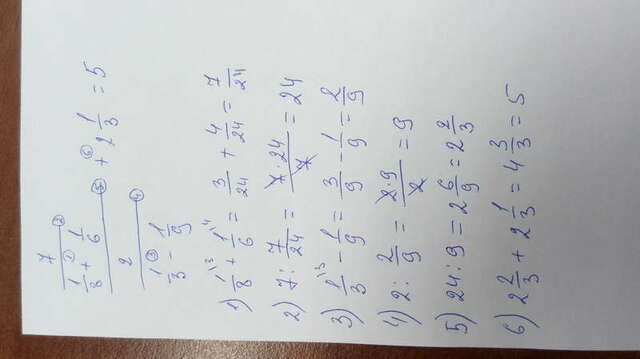 7 ②
1/8 ① + 1/6 ⑤ + ⑥ 2 1/3 = 5
2 ④
1/3 ③ - 1/9
1) 1/8 \3 + 1/6 \4 = 3/24 + 4/24 = 7/24
2) 7 : 7/24 = 7·24/7 = 24
3) 1/3 \3 - 1/9 = 3/9 - 1/9 = 2/9
4) 2 : 2/9 = 2·9/2 = 9
5) 24 : 9 = 2 6/9 = 2 2/3
6) 2 2/3 + 2 1/3 = 4 3/3 = 5